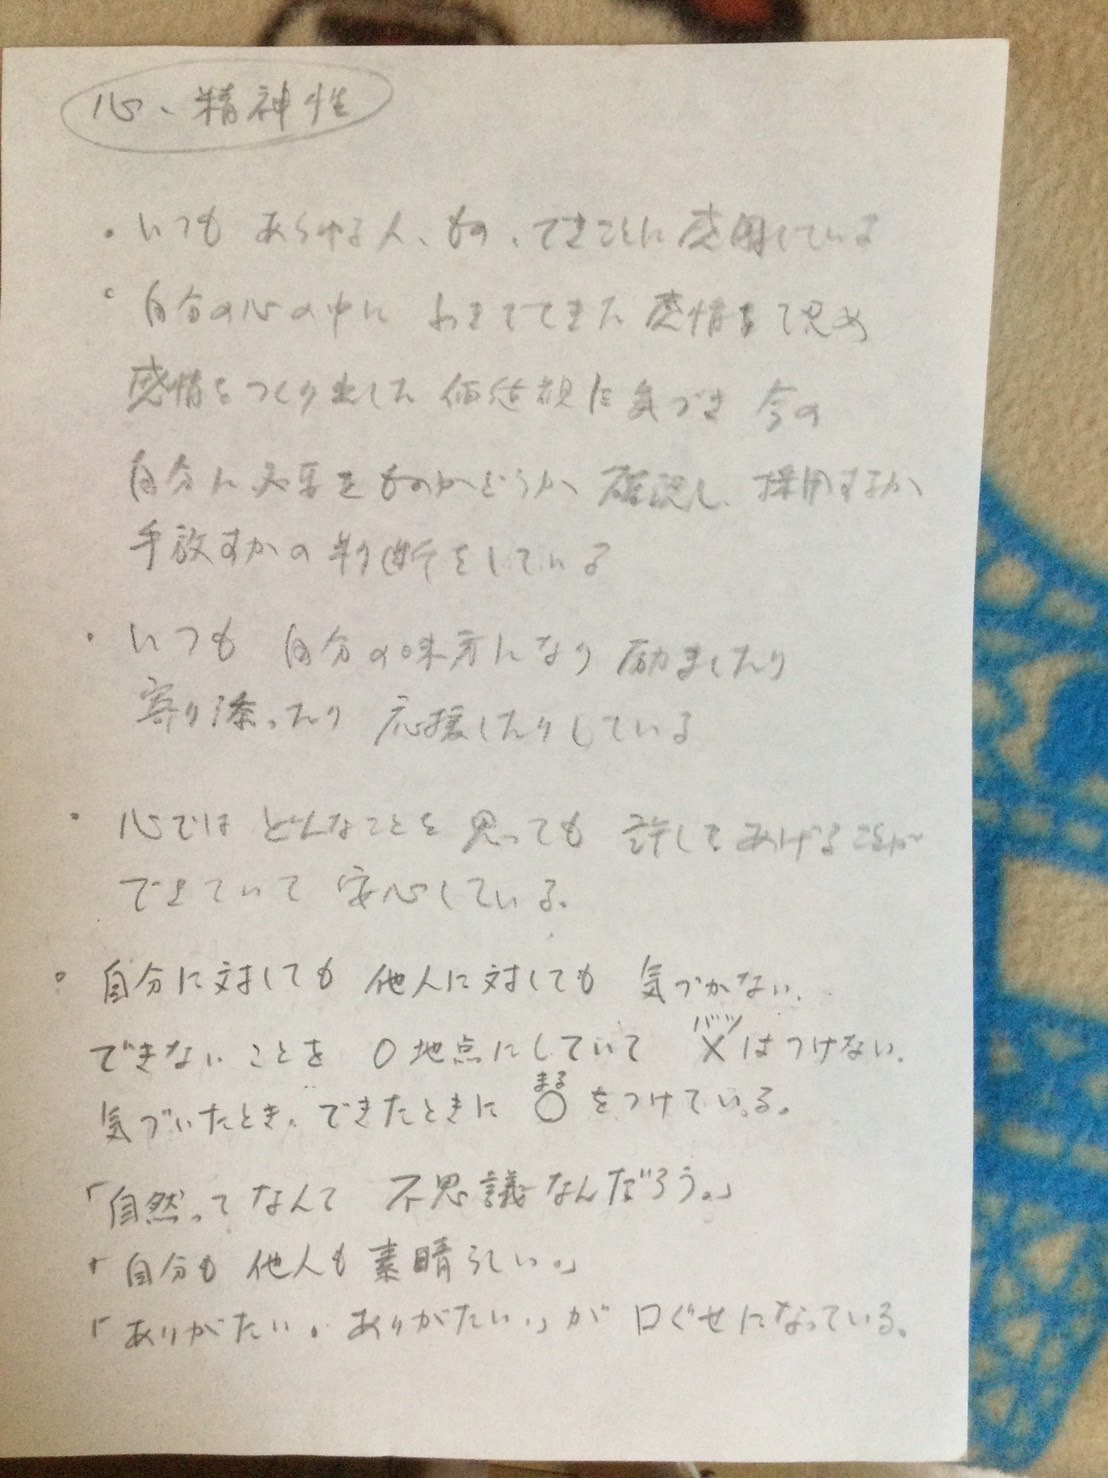 心、精神性
・いつも あらゆる人、もの、できごとに感謝している
・自分の心の中に わきでてきた 感情を認め
感情をつくり出した 価値観に気づき 今の
自分に必要なものかどうか 確認し、採用するか
手放すかの判断をしている
・いつも 自分の味方になり 励ましたり
寄り添ったり 応援したりしている
・心では どんなことを 思っても 許してあげることが
できていて 安心している。
・自分に対しても 他人に対しても 気づかない、
できないことを 0地点にしていて ×はつけない。
バツ
気づいたとき、できたときに ○をつけている。
まる
「自然ってなんて 不思議なんだろう。」
「自分も 他人も 素晴らしい。」
「ありがたい。ありがたい。」が 口ぐせになっている。